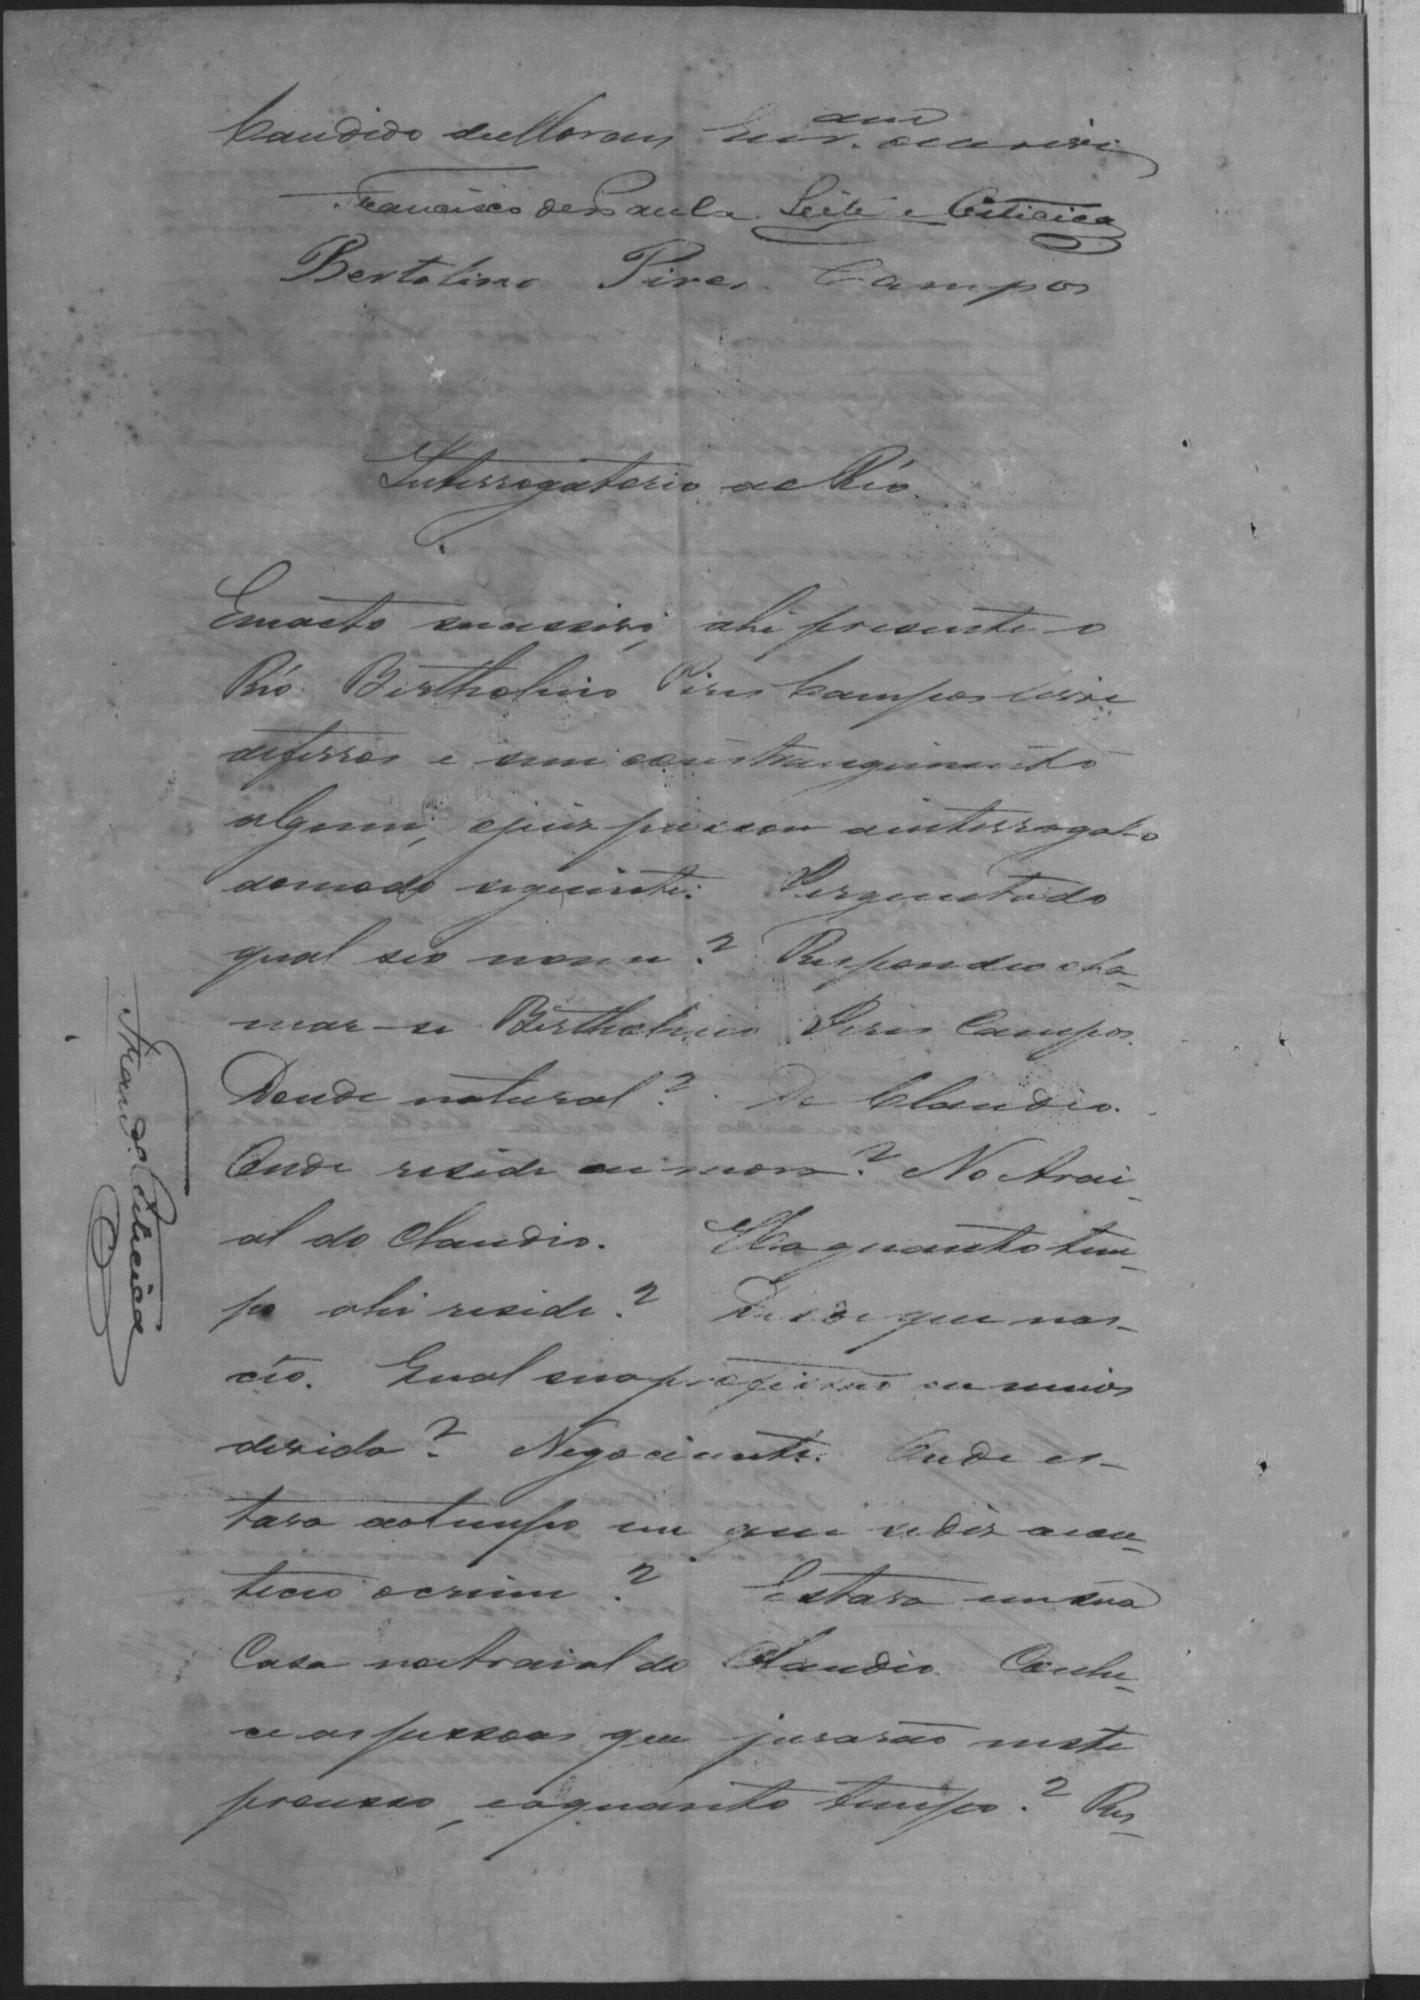 Candido de Moraes escr.am escrevi
Francisco de Paula Leite e Oiticica
Bertolino Pires Campos
Interrogatorio ao Réo
Em acto successivo, ahi presente o
Réo Bertholino Pires Campos livre
de ferros e sem constrangimento
algum, o juiz passou a interrogal-o
do modo seguinte: Perguntado
qual seo nome? Respondeo cha-
mar-se Bertholino Pires Campos.
Donde natural? De Claudio.
Onde reside ou mora? No Arai-
al do Claudio. Ha quanto tem-
po ahi reside? Desde que nas-
ceo. Qual sua profissão ou meios
de vida? Negociante. Onde es-
tava ao tempo em que se diz acon-
teceo o crime? Estava em sua
Casa no Araial do Claudio. Conhe-
ce as pessoas que jurarão neste
processo, e a quanto tempo? Res-
Fran.co Oiticica